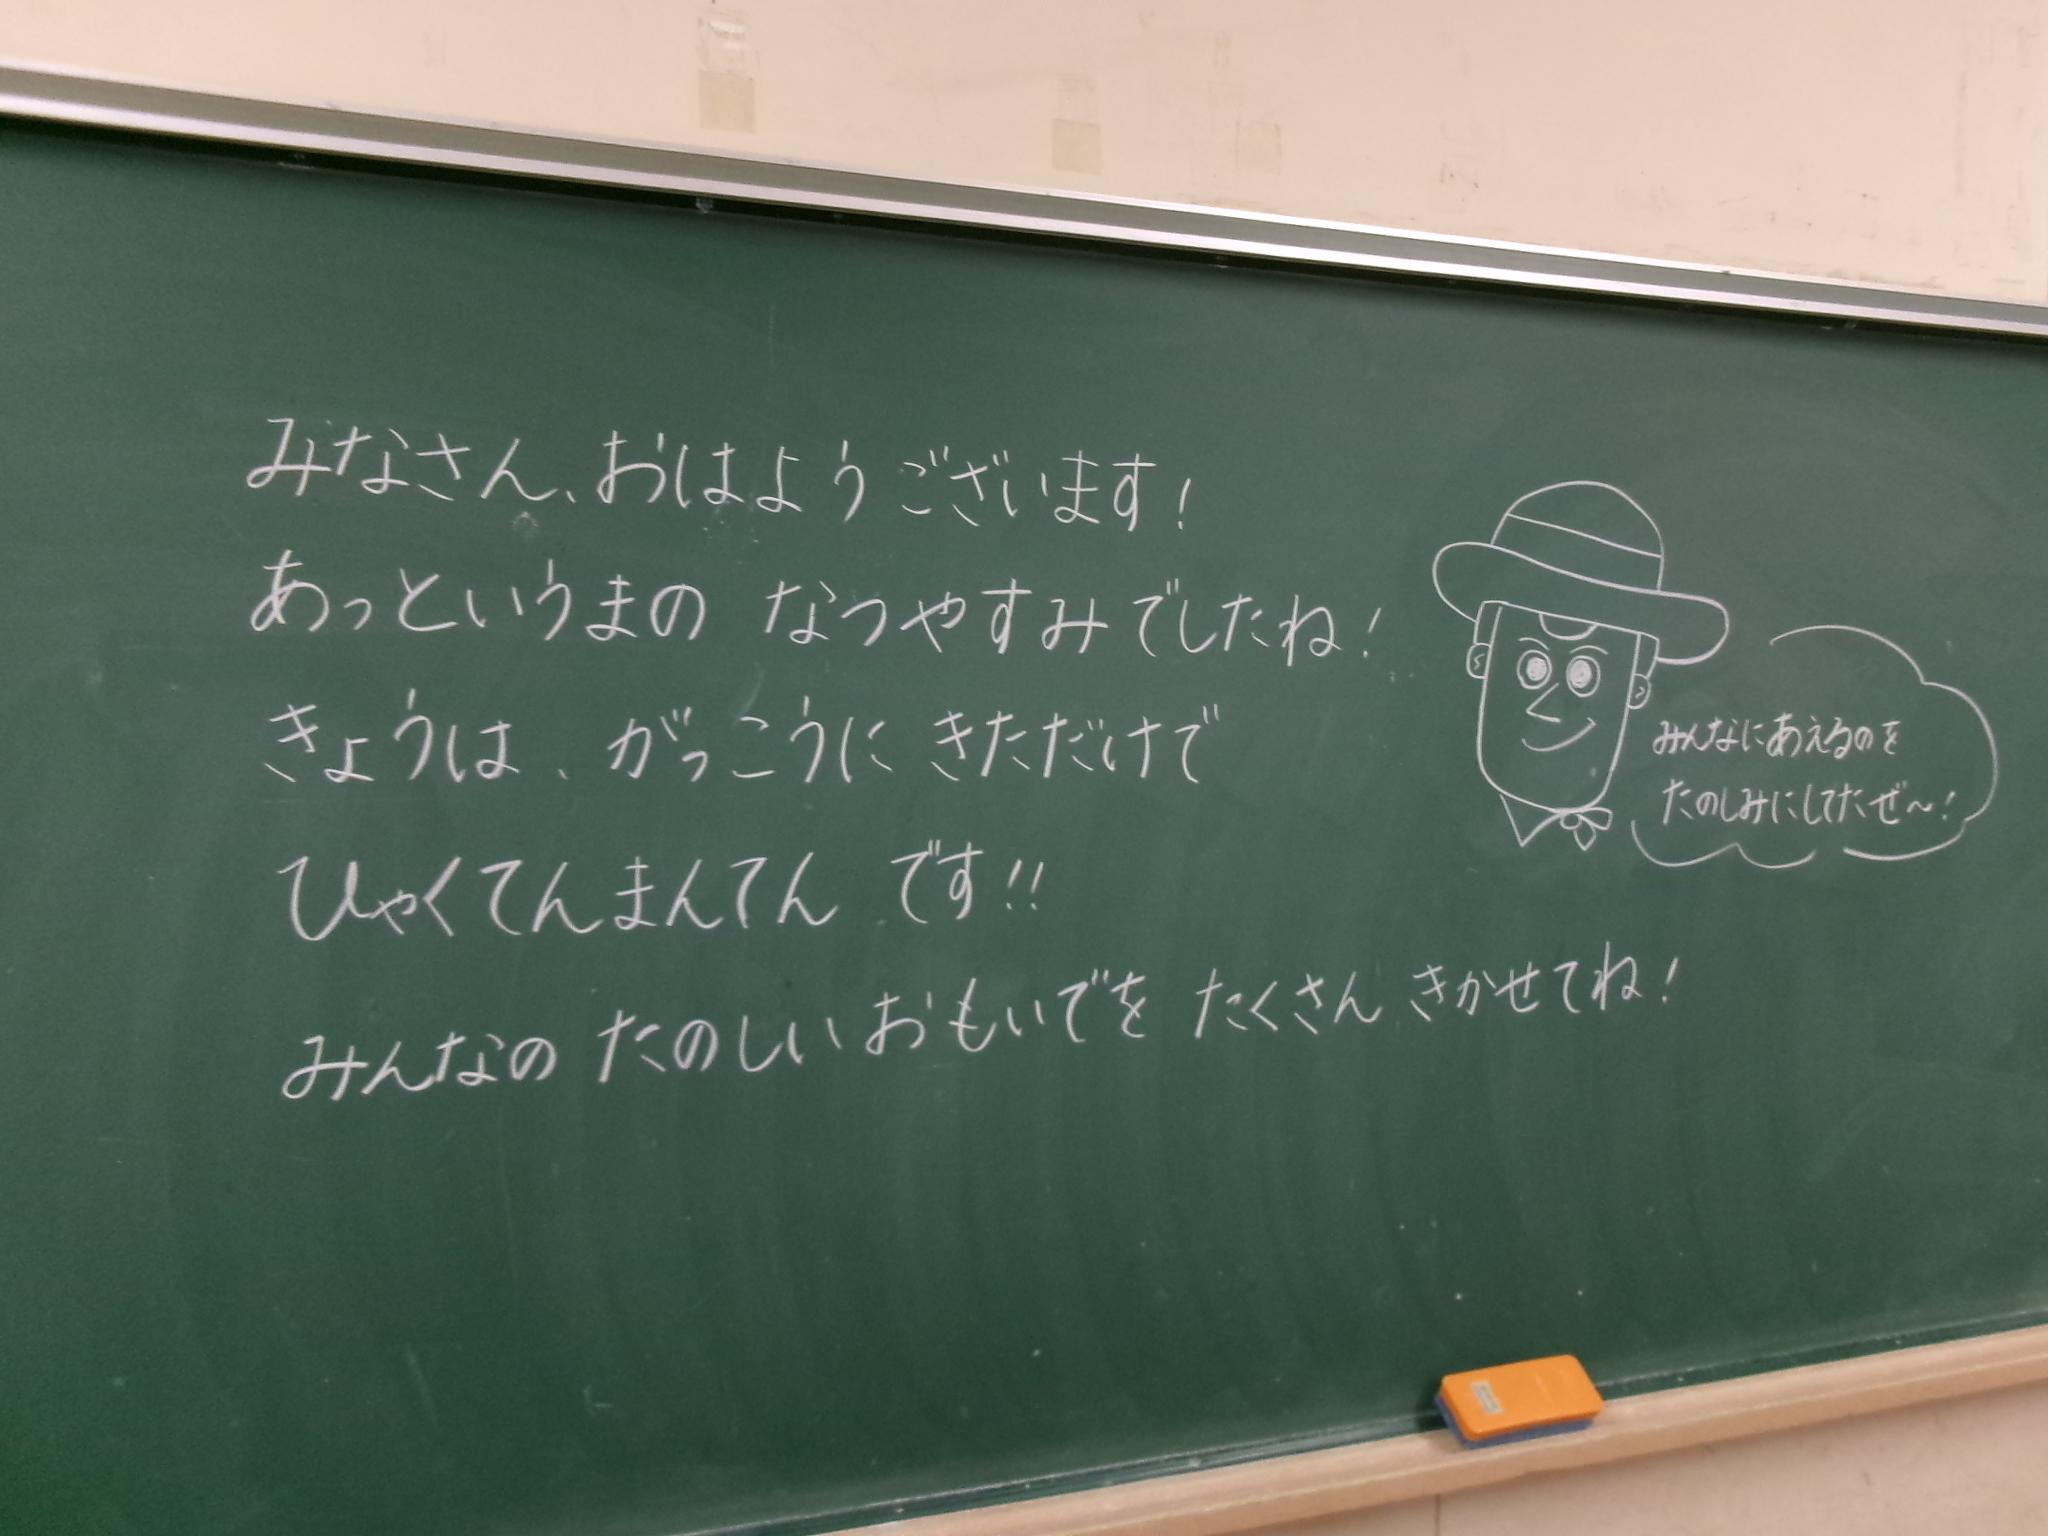 みなさん、おはようございます！
あっというまの なつやすみでしたね！
きょうは、がっこうに きただけで
ひゃくてんまんてん です！！
みんなの たのしい おもいでを たくさん きかせてね！
みんなにあえるのを
たのしみにしてたぜ～！